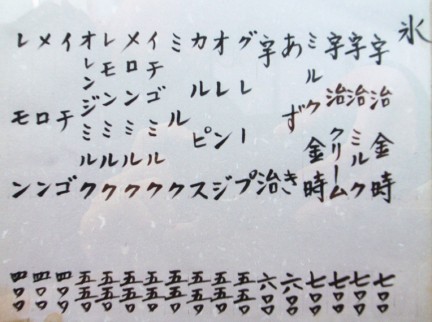 氷
宇治金時 七〇〇
宇治ミルク 七〇〇
宇治クリーム 七〇〇
ミルク金時 七〇〇
あずき 六〇〇
宇治 六〇〇
グレープ 五五〇
オレンジ 五五〇
カルピス 五五〇
ミルク 五五〇
イチゴミルク 五五〇
メロンミルク 五五〇
レモンミルク 五五〇
オレンジミルク 五五〇
イチゴ 四〇〇
メロン 四〇〇
レモン 四〇〇